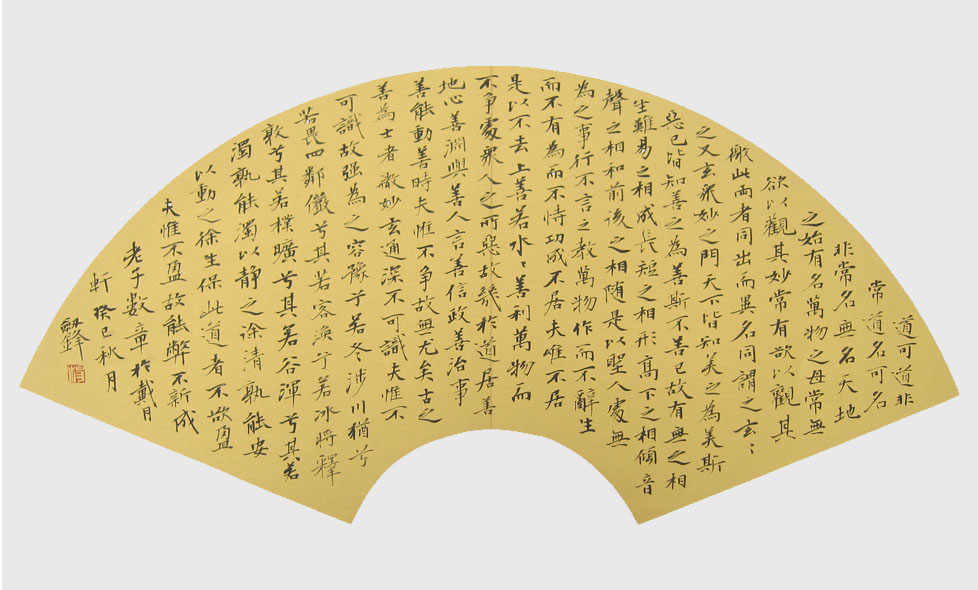 道可道非
常道名可名
非常名無名天地
之始有名萬物之母常無
欲以觀其妙常有欲以觀其
徼此兩者同出而異名同謂之玄〻
之又玄眾妙之門天下皆知美之為美斯
惡已皆知善之為善斯不善已故有無之相
生難易之相成長短之相形高下之相傾音
聲之相和前後之相隨是以聖人處無
為之事行不言之教萬物作而不辭生
而不有為而不恃功成不居夫唯不居
是以不去上善若水〻善利萬物而
不爭處眾人之所惡故幾於道居善
地心善淵與善人言善信政善治事
善能動善時夫惟不爭故無尤矣古之
善為士者微妙玄通深不可識夫惟不
可識故强為之容豫兮若冬涉川猶兮
若畏四鄰儼兮其若容渙兮若冰將釋
敦兮其若樸曠兮其若谷渾兮其若
濁孰能濁以靜之徐清孰能安
以動之徐生保此道者不欲盈
夫惟不盈故能弊不新成
老子數章於戴月
軒癸巳秋月
劔鋒